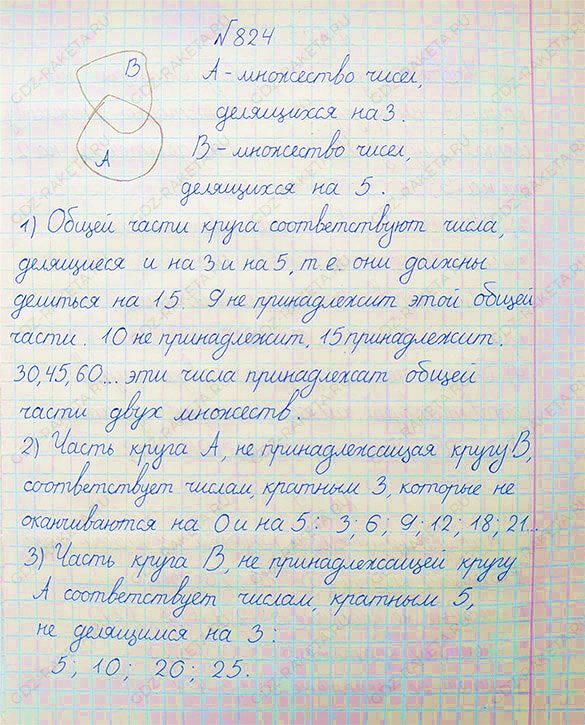 №824
B
A - множество чисел,
делящихся на 3.
A
B - множество чисел,
делящихся на 5.
1) Общей части круга соответствуют числа,
делящиеся и на 3 и на 5, т.е. они должны
делиться на 15. 9 не принадлежит этой общей
части. 10 не принадлежит, 15 принадлежит.
30, 45, 60... эти числа принадлежат общей
части двух множеств.
2) Часть круга A, не принадлежащая кругу B,
соответствует числам, кратным 3, которые не
оканчиваются на 0 и на 5: 3; 6; 9; 12; 18; 21...
3) Часть круга B, не принадлежащей кругу
A соответствует числам, кратным 5,
не делящимся на 3:
5; 10; 20; 25.
GDZ-RAKETA.RU